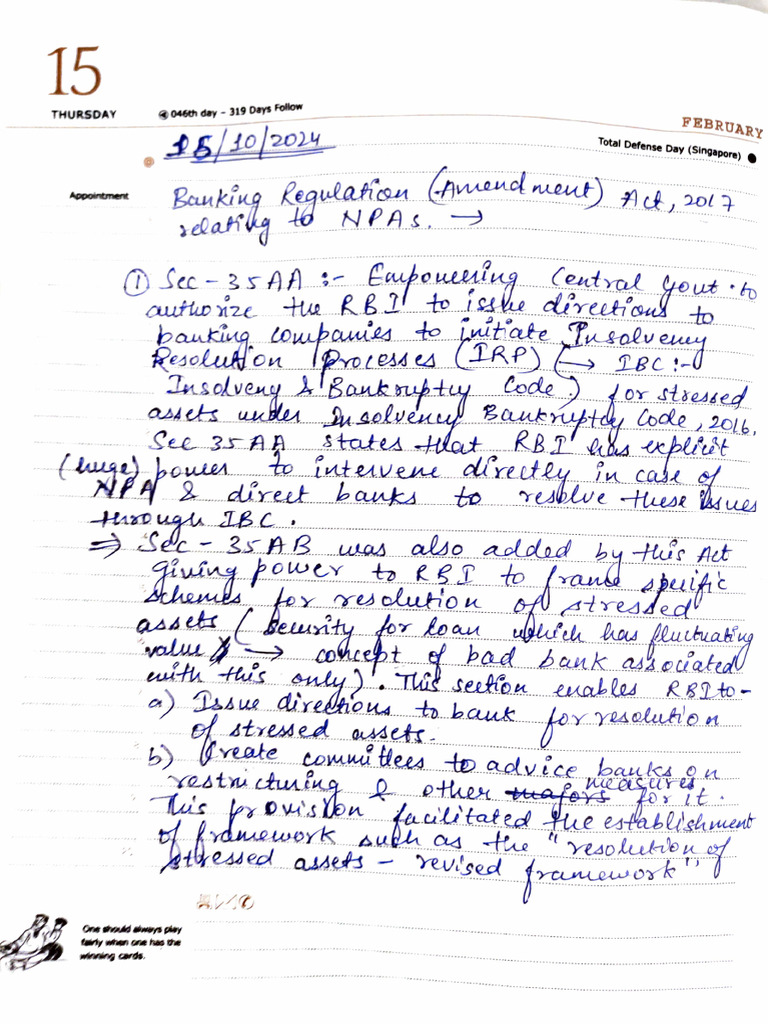 15
THURSDAY
046th day - 319 Days Follow
FEBRUARY
Total Defense Day (Singapore)
15/10/2024
Appointment
Banking Regulation (Amendment) Act, 2017
relating to NPAs. →
① Sec - 35AA :- Empowering Central Govt. to
authorize the RBI to issue directions to
banking companies to initiate Insolvency
Resolution Processes (IRP) (→ IBC :-
Insolveny & Bankruptcy Code) for stressed
assets under Insolvency Bankruptcy Code, 2016.
Sec 35AA states that RBI has explicit
(huge) power to intervene directly in case of
NPA & direct banks to resolve these issues
through IBC.
⇒ Sec - 35AB was also added by this Act
giving power to RBI to frame specific
schemes for resolution of stressed
assets (security for loan which has fluctuating
value → concept of bad bank associated
with this only). This section enables RBI to -
a) Issue directions to bank for resolution
of stressed assets.
b) Create committees to advice banks on
restricturing & other measures for it.
This provision facilitated the establishment
of framework such as the "resolution of
stressed assets - revised framework"
One should always play
fairly when one has the
winning cards.